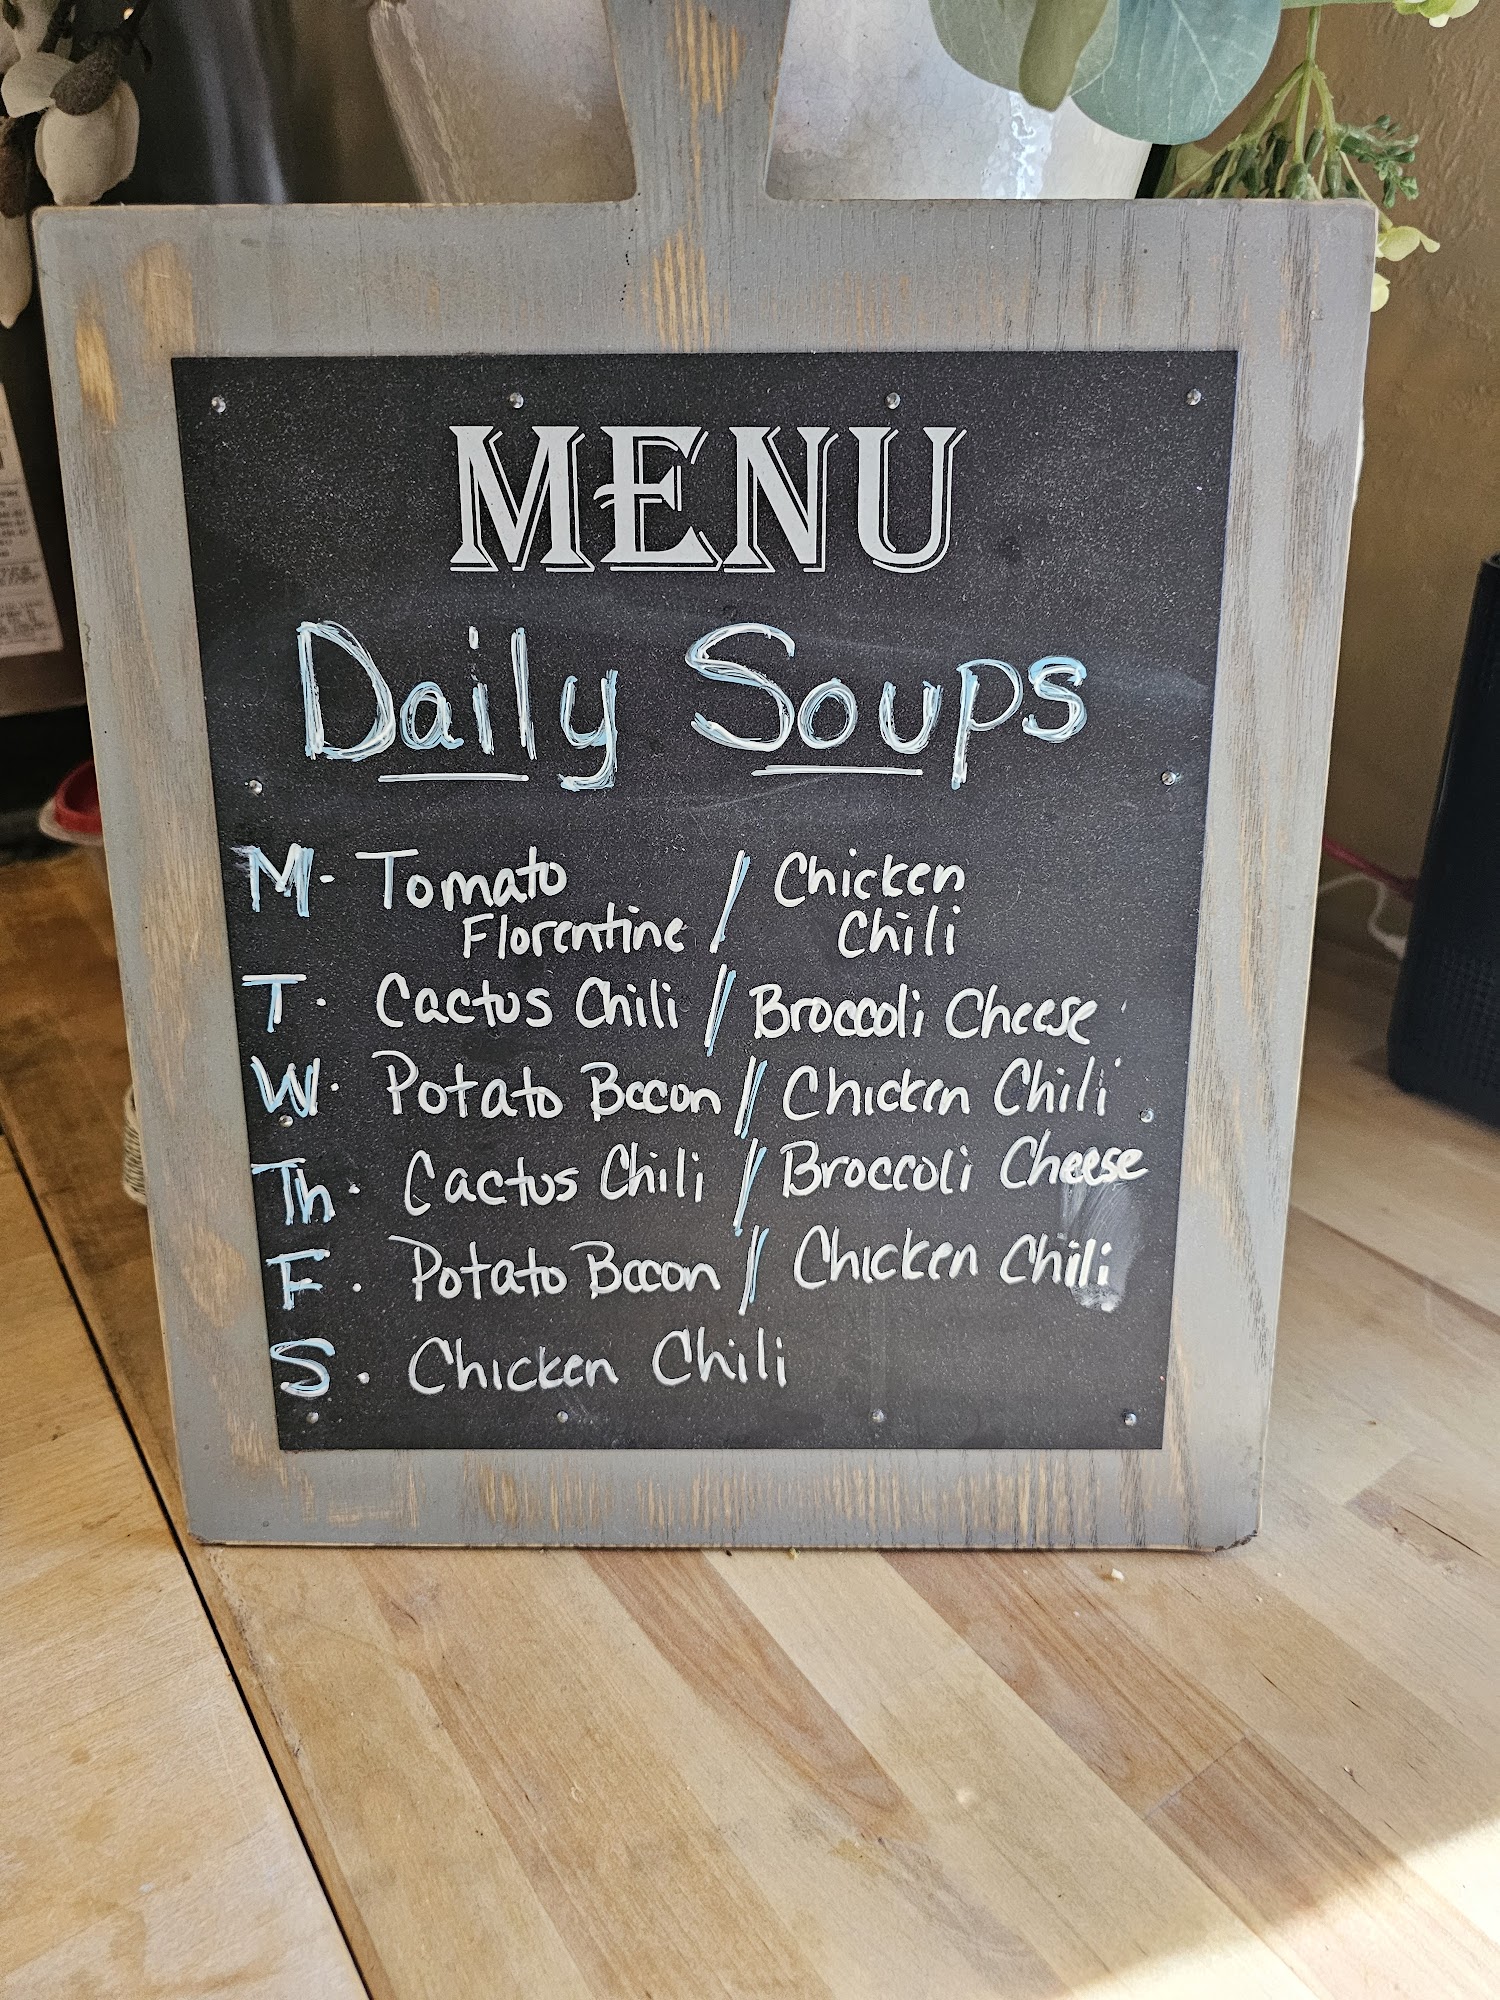 MENU
Daily Soups
M. Tomato / Chicken
Florentine Chili
T. Cactus Chili / Broccoli Cheese
W. Potato Bacon / Chicken Chili
Th. Cactus Chili / Broccoli Cheese
F. Potato Bacon / Chicken Chili
S. Chicken Chili